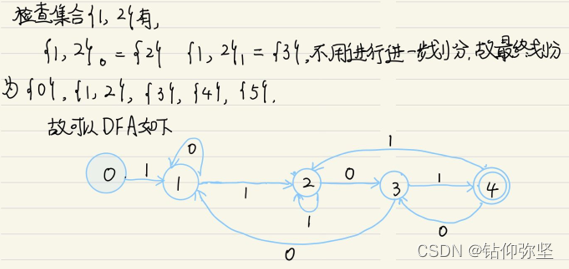 检查集合{1, 2}有,
{1, 2}₀ = {2} {1, 2}₁ = {3}, 不用进行进一步划分, 故最终划分
为{0}, {1, 2}, {3}, {4}, {5}.
故可以DFA如下
0
1
0 1 1 1 2 0 3 1 4
1
0
0
CSDN @钻仰弥坚